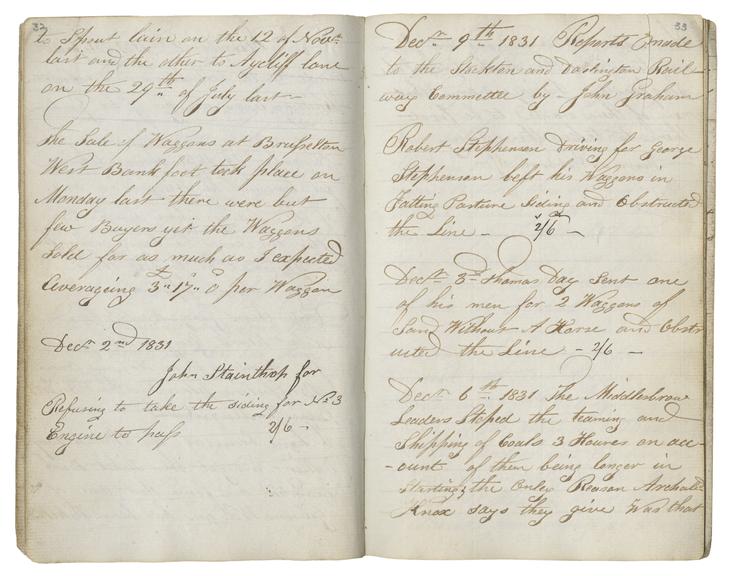 32
to Spout lain on the 12 of Novr
last and the other to Aycliff lane
on the 29th of July last-
The Sale of Waggons at Brusselton
West Bank foot took place on
Monday last there were but
few Buyers yit the Waggons
Sold for as much as I expected
Averageing £3" 17" 0 per Waggon
Decr 2nd 1831
John Stainthop for
Refusing to take the siding for No 3
Engine to pass 2/6 -
33
Decr 9th 1831 Reports made
to the Stockton and Darlington Rail-
way Committee by - John Graham
Robert Stephenson Driving for George
Stephenson left his Waggons in
Fatting Pasture Siding and Obstructed
the Line - 2/6 -
Decr 3rd Thomas Day Sent one
of his men for 2 Waggons of
Sand Without A Horse and Obstr
ucted the Line - 2/6 -
Decr 6th 1831 The Middlesbrow
Leaders Stoped the teaming and
Shipping of Coals 3 Houres on acc-
-ount of them being longer in
Starting; the Onley Reason
Knox says they give Was that